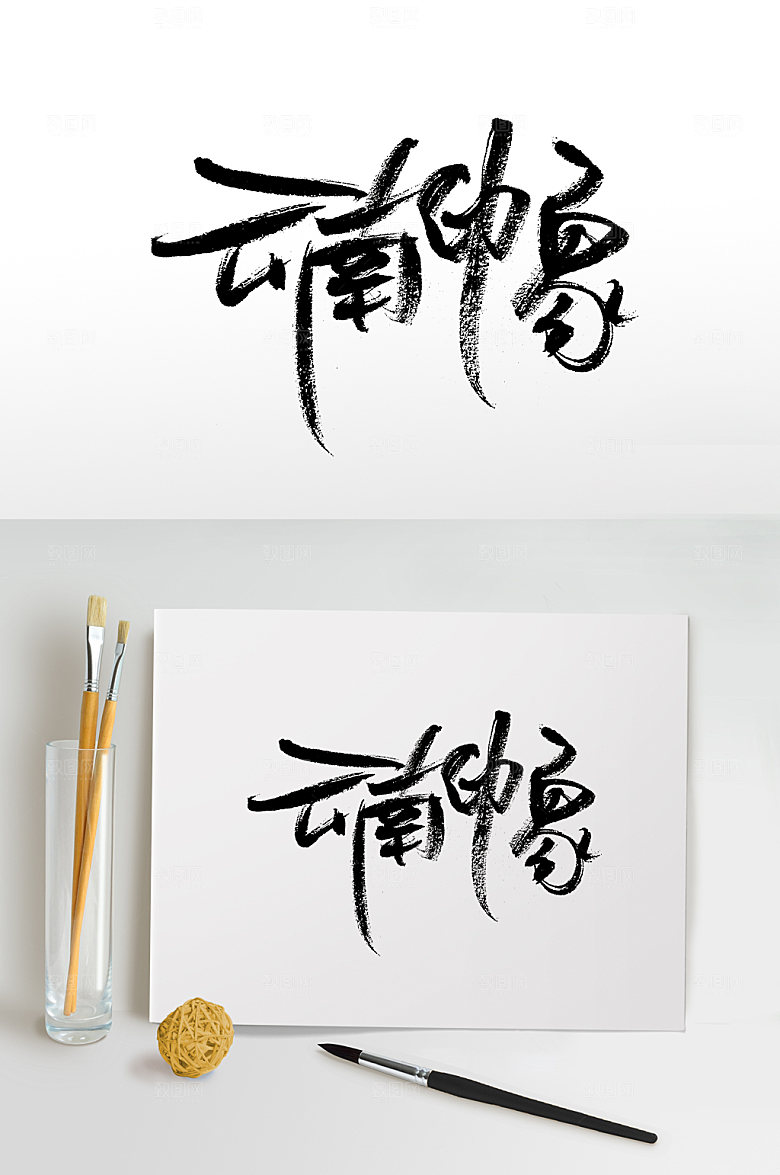 云南印象
云南印象